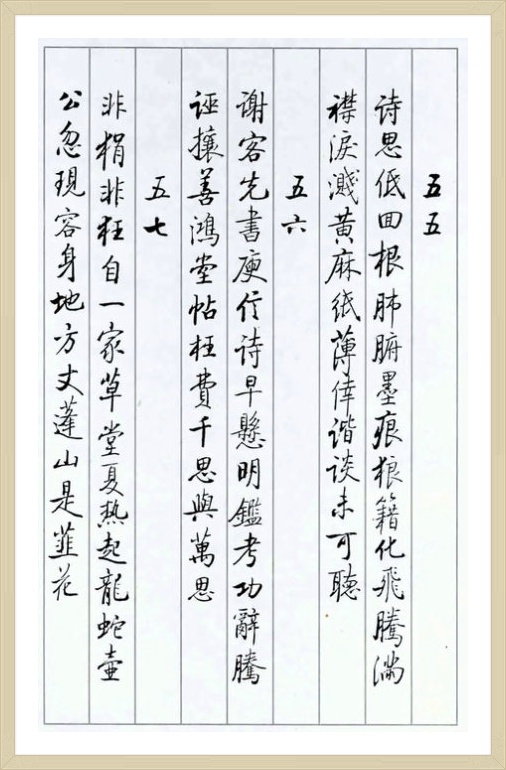 五五
诗思低回根肺腑墨痕狼籍化飛騰满
襟淚濺黄麻纸薄倖谐谈未可聽
五六
谢客先書庾信诗早懸明鑑考功辭騰
诬攘善鴻堂帖枉費千思與萬思
五七
非狷非狂自一家草堂夏热起龍蛇壶
公忽現容身地方丈蓬山是韭花